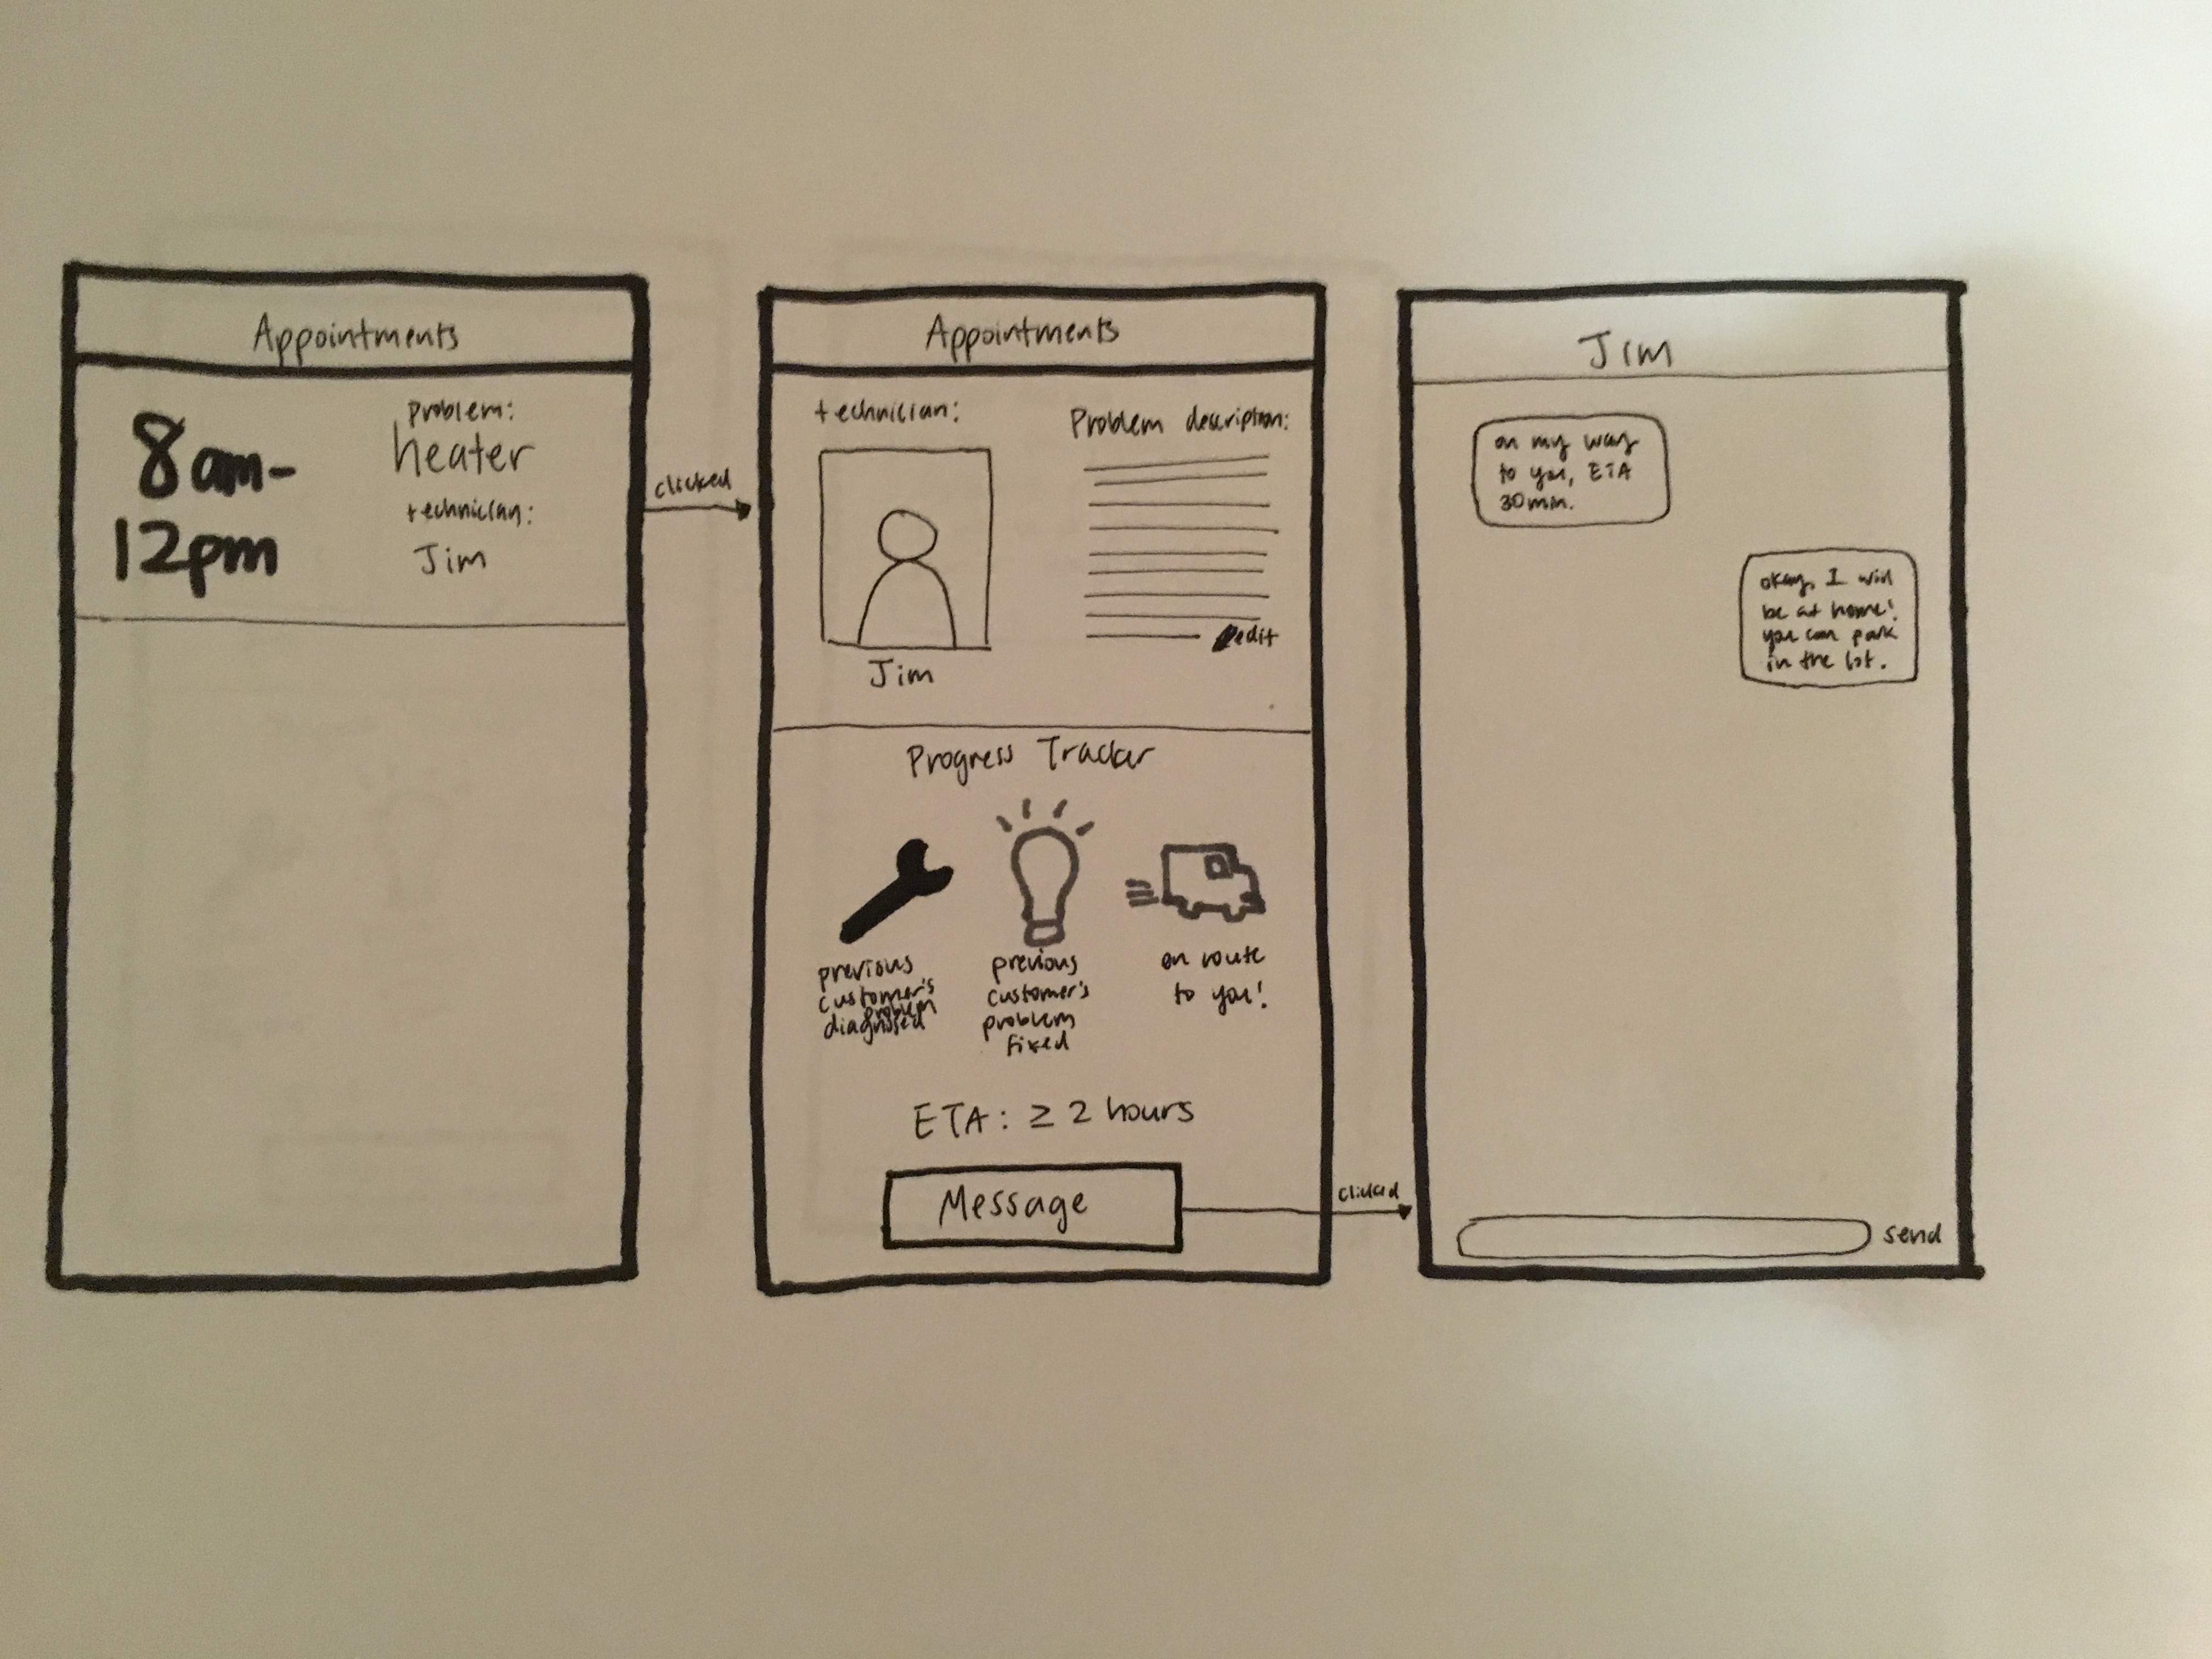 Appointments
8am-
12pm
problem:
heater
technician:
Jim
clicked
Appointments
technician:
Jim
Problem description:
edit
Progress Tracker
previous
customer's
problem
diagnosed
previous
customer's
problem
fixed
on route
to you!
ETA: ≥ 2 hours
Message
clicked
Jim
on my way
to you, ETA
30min.
okay, I will
be at home!
you can park
in the lot.
send